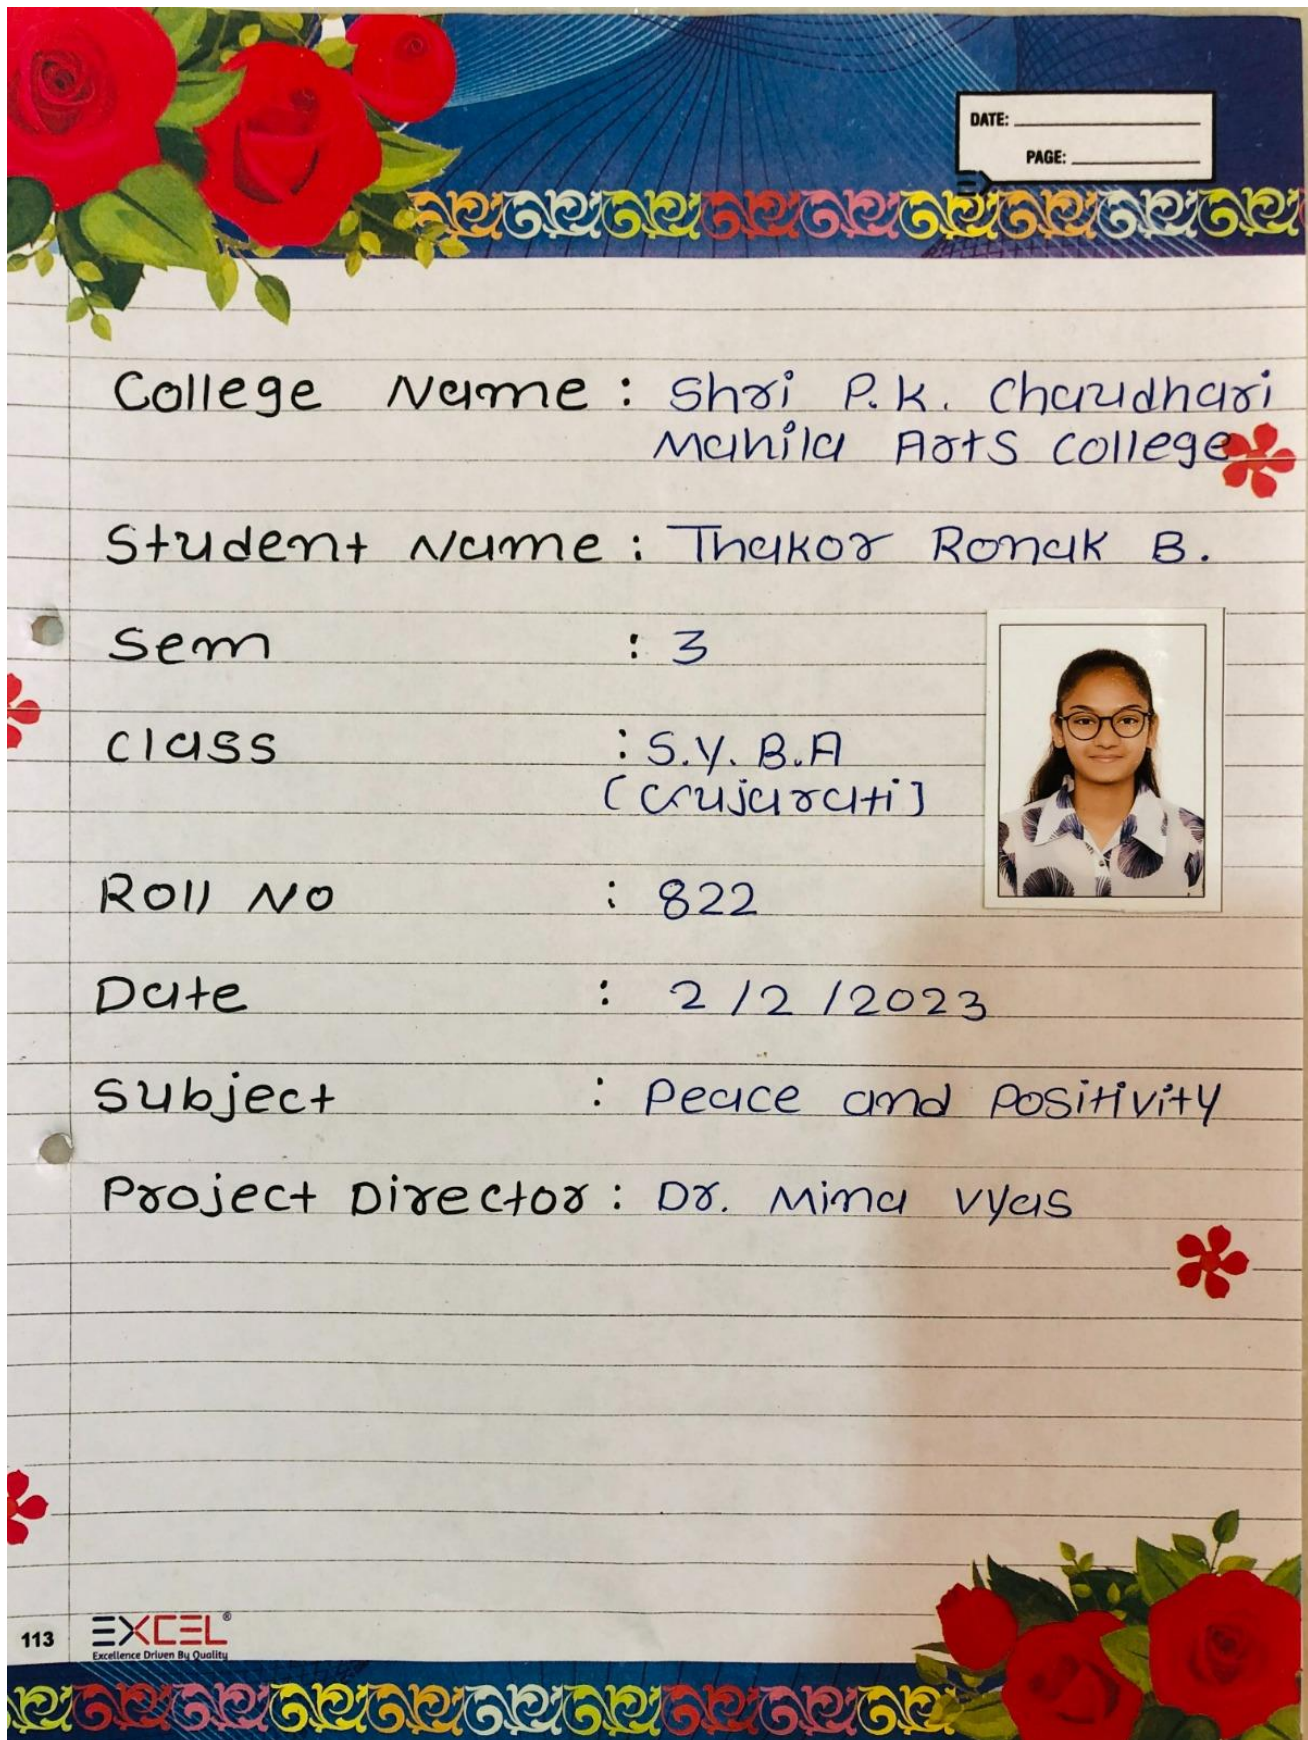 DATE:
PAGE:
College Name : Shri P.K. Chaudhari
Mahila Arts College
Student Name : Thakor Ronak B.
Sem : 3
Class : S.Y. B.A
(Gujarati]
Roll No : 822
Date : 2/2/2023
Subject : Peace and Positivity
Project Director : Dr. Mina Vyas
113
EXCEL®
Excellence Driven By Quality